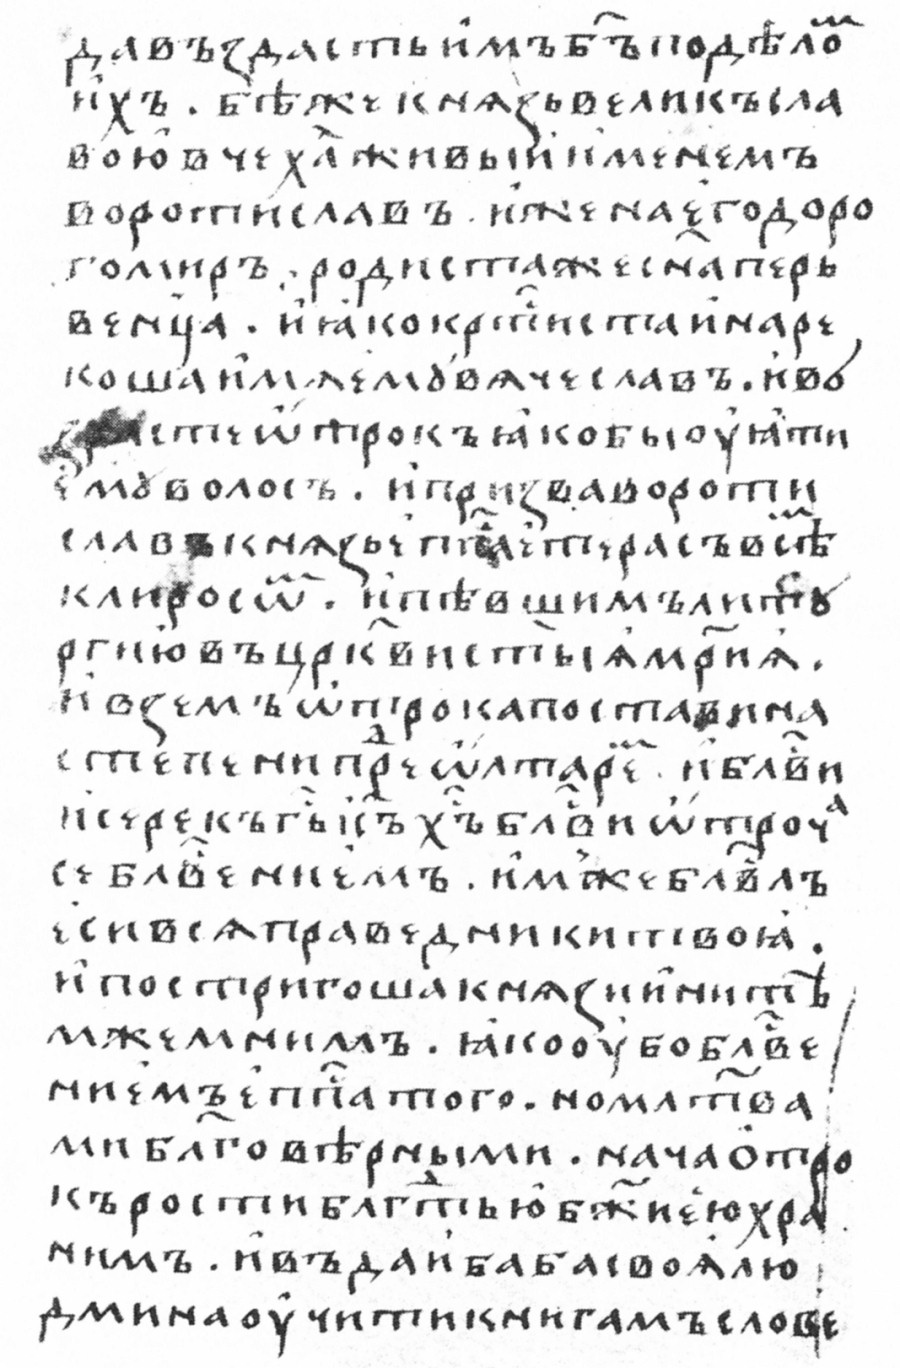 давъздасть и҆мъ б҃ъ по дѣло ⷨ
и҆хъ . бѣ же кнѧзь великъ сла
вою в чеха ⷯ живыи҆ и҆менемъ
воротиславъ . и҆ жена є҆го доро
гомиръ . родиста же сн҃а перь
венца . и҆ ꙗ҆ко крⷭ҇тиста и҆ наре
коша и҆мѧ ємꙋ вѧчеславъ . и҆ во
зрасте ѿрокъ ꙗ҆ко бы оу҆ꙗ҆ти
є҆мꙋ волосъ . и҆ призва вороти
славъ кнѧзь є҆пⷭ҇па є҆тера съ всѣⷨ
клиросѡⷨ . и҆ пѣвшимъ литꙋ
ргию въ црк҃ви ст҃ыꙗ мр҃иꙗ .
и҆ вземъ ѿрока постави на
степени преⷣ ѡ҆лтареⷨ . и҆ блⷭ҇ви
и҆ се рекъ гⷭ҇ь і҆с҃ъ хⷭ҇ъ блⷭ҇ви ѡ҆трочⷶ
се блⷭ҇вениемъ . и҆мже блⷭ҇влъ
є҆си всѧ праведники твоꙗ҆ .
и҆ постригоша кнѧзи и҆ни тѣ
мже мнимъ . ꙗ҆ко оу҆бо блⷭ҇ве
ниемъ є҆пⷭ҇па того . но млт҃ва
ми бл҃говѣрными . нача ѻтро
къ рости блгⷣтью бж҃иею хра
нимъ . и҆ въда и҆ баба своꙗ лю
дмина оу҆чити книгамъ слове